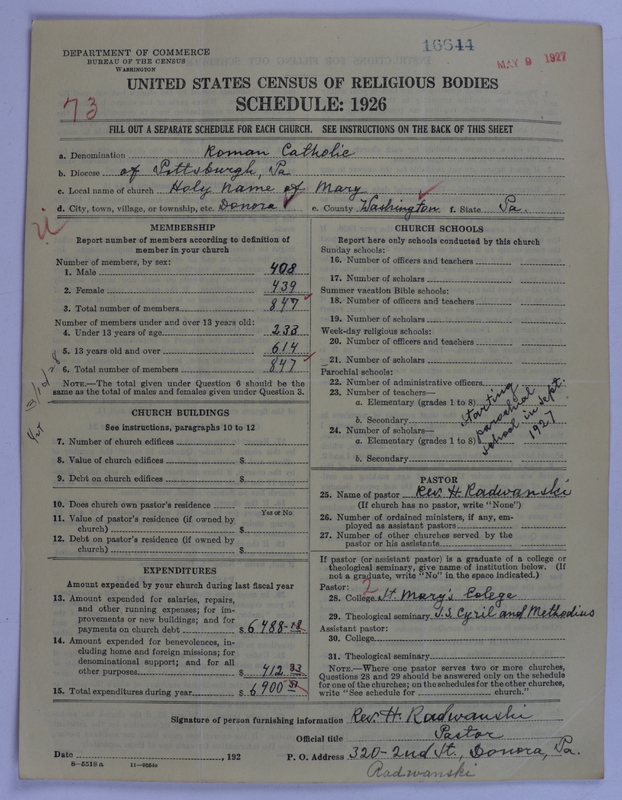 16644
MAY 9 1927
DEPARTMENT OF COMMERCE
BUREAU OF THE CENSUS
WASHINGTON
UNITED STATES CENSUS OF RELIGIOUS BODIES
SCHEDULE: 1926
73
FILL OUT A SEPARATE SCHEDULE FOR EACH CHURCH. SEE INSTRUCTIONS ON THE BACK OF THIS SHEET
a. Denomination Roman Catholic
b. Diocese of Pittsburgh, Pa
c. Local name of church Holy Name of Mary
d. City, town, village, or township, etc. Donora e. County Washington f. State Pa.
MEMBERSHIP
Report number of members according to definition of
member in your church
Number of members, by sex:
1. Male 408
2. Female 439
3. Total number of members 847
Number of members under and over 13 years old:
4. Under 13 years of age 233
5. 13 years old and over 614
6. Total number of members 847
NOTE.—The total given under Question 6 should be the
same as the total of males and females given under Question 3.
CHURCH BUILDINGS
See instructions, paragraphs 10 to 12
7. Number of church edifices
8. Value of church edifices $
9. Debt on church edifices $
10. Does church own pastor's residence
Yes or No
11. Value of pastor's residence (if owned by
church) $
12. Debt on pastor's residence (if owned by
church) $
EXPENDITURES
Amount expended by your church during last fiscal year
13. Amount expended for salaries, repairs,
and other running expenses; for im-
provements or new buildings; and for
payments on church debt $ 6488.18
14. Amount expended for benevolences, in-
cluding home and foreign missions; for
denominational support; and for all
other purposes $ 412.33
15. Total expenditures during year $ 6900.51
CHURCH SCHOOLS
Report here only schools conducted by this church
Sunday schools:
16. Number of officers and teachers
17. Number of scholars
Summer vacation Bible schools:
18. Number of officers and teachers
19. Number of scholars
Week-day religious schools:
20. Number of officers and teachers
21. Number of scholars
Parochial schools:
22. Number of administrative officers
23. Number of teachers—
a. Elementary (grades 1 to 8)
b. Secondary
24. Number of scholars—
a. Elementary (grades 1 to 8)
b. Secondary
starting
parochial
school in Sept.
1927
PASTOR
25. Name of pastor Rev. H. Radwanski
(If church has no pastor, write "None")
26. Number of ordained ministers, if any, em-
ployed as assistant pastors
27. Number of other churches served by the
pastor or his assistants
If pastor (or assistant pastor) is a graduate of a college or
theological seminary, give name of institution below. (If
not a graduate, write "No" in the space indicated.)
Pastor: 2
28. College St. Mary's Colege
29. Theological seminary S.S. Cyril and Methodius
Assistant pastor:
30. College
31. Theological seminary
NOTE.—Where one pastor serves two or more churches,
Questions 28 and 29 should be answered only on the schedule
for one of the churches; on the schedules for the other churches,
write "See schedule for church."
Signature of person furnishing information Rev. H. Radwanski
Official title Pastor
Date , 192 P. O. Address 320-2nd St., Donora, Pa.
8-5518 a 11-9284a
Radwanski